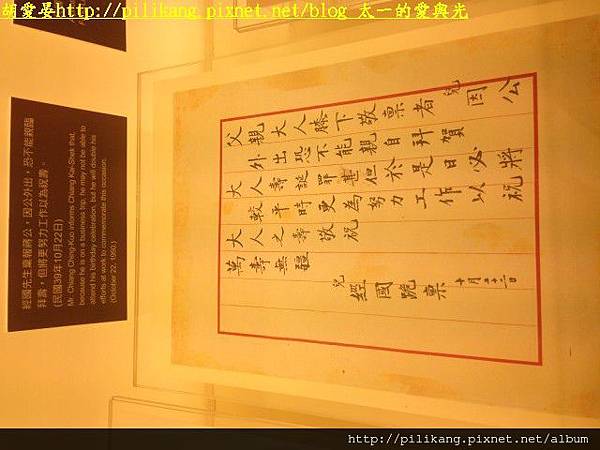 胡愛晏http://pilikang.pixnet.net/blog 太一的愛與光
經國先生稟報蔣公，因公外出，恐不能親臨
拜壽，但將更努力工作以為祝壽。
(民國39年10月22日)
Mr. Chiang Ching-Kuo informs Chiang Kai-Shek that,
because he is on a business trip, he may not be able to
attend his birthday celebration, but he will double his
efforts at work to commemorate this occasion.
(October 22, 1950.)
父親大人膝下敬稟者兒因公
外出恐不能親自拜賀
大人壽誕罪甚但於是日必將
較平時更為努力工作以祝
大人之壽敬祝
萬壽無疆
兒經國跪稟 十月二十二日
http://pilikang.pixnet.net/album